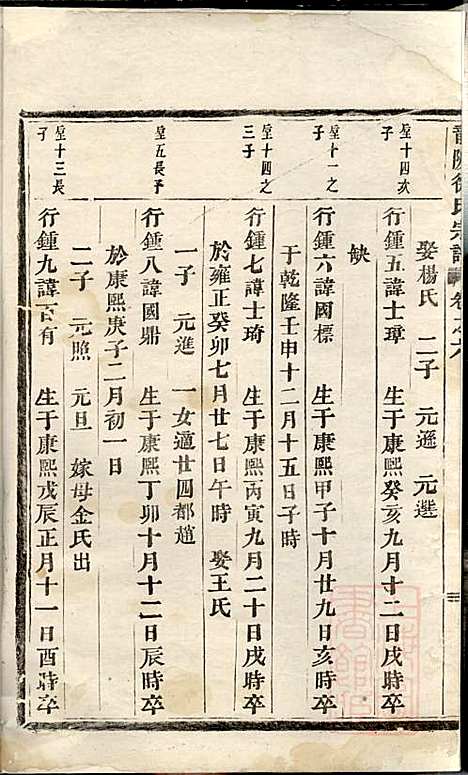 晉陵徐氏宗譜 卷之六
娶楊氏 二子 元遜 元選
堂十四次子
行鍾五諱士璋 生于康熙癸亥九月十二日戌時卒
缺
堂十一之子
行鍾六諱國標 生于康熙甲子十月廿九日亥時卒
于乾隆壬申十二月十五日子時
堂十四之三子
行鍾七諱士琦 生于康熙丙寅九月二十日戌時卒
於雍正癸卯七月廿七日午時 娶王氏
一子 元進 一女適廿四都趙
堂五長子
行鍾八諱國鼎 生于康熙丁卯十月十二日辰時卒
於康熙庚子二月初一日
二子 元照 元旦 嫁母金氏出
堂十三長子
行鍾九諱百有 生于康熙戊辰正月十一日酉時卒